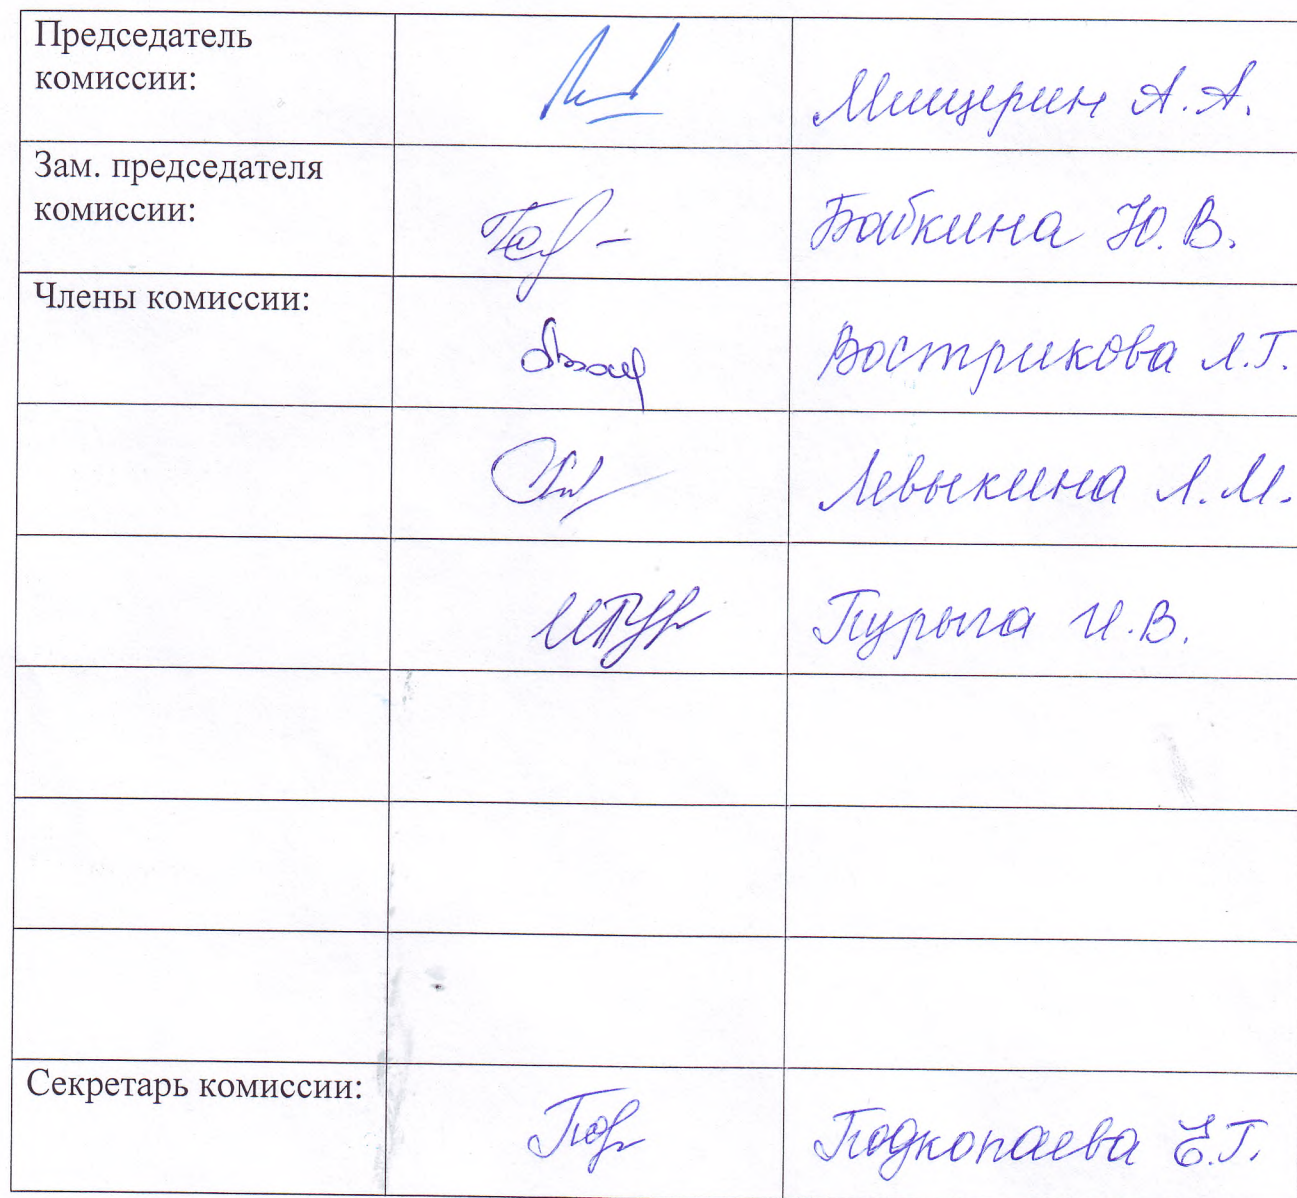 Председатель
комиссии:
Мищерин А.А.
Зам. председателя
комиссии:
Бабкина Ю.В.
Члены комиссии:
Вострикова Л.Г.
Левыкина Л.М.
Пурыга И.В.
Секретарь комиссии:
Подкопаева Е.Г.